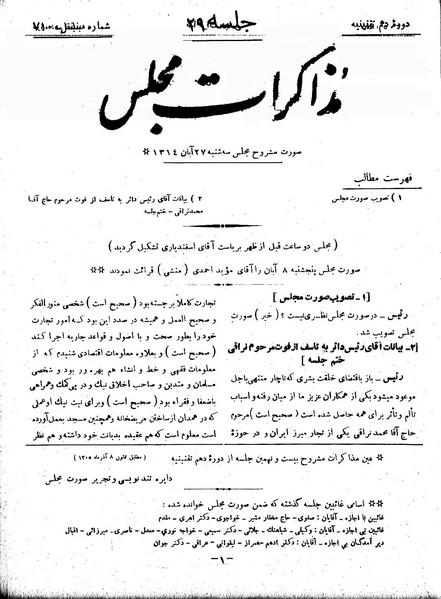 دوره دهم تقنینیه
جلسه ۲۹
شماره مسلسل
مذاکرات مجلس
صورت مشروح مجلس سه شنبه ۲۷ آبان ۱۳۱۴ ※
فهرست مطالب
۱ ) تصویب صورت مجلس
۲ ) بیانات آقای رئیس دائر به تاسف از فوت مرحوم حاج آقا
محمد نراقی - ختم جلسه
( مجلس دو ساعت قبل از ظهر بریاست آقای اسفندیاری تشکیل گردید )
صورت مجلس پنجشنبه ۸ آبان را آقای مؤید احمدی ( منشی ) قرائت نمودند ※※
[ ۱ - تصویب صورت مجلس ]
رئیس - در صورت مجلس نظری نیست ؟ ( خیر ) صورت
مجلس تصویب شد .
[ ۲- بیانات آقای رئیس دائر به تاسف از فوت مرحوم نراقی
ختم جلسه ]
رئیس - باز باقتضای خلقت بشری که ناچار منتهی باجل
موعود میشود یکی از همکاران عزیز ما از میان رفته و اسباب
تألم و تأثر برای همه حاصل شده است ( صحیح است ) مرحوم
حاج آقا محمد نراقی یکی از تجار مبرز ایران و در حوزهٔ
تجارت کاملا برجسته بود ( صحیح است ) شخصی منور الفکر
و صحیح العمل و همیشه در صدد این بود که امور تجارت
خود را بطور صحت و با اصول و قواعد جاریه اجرا کند
( صحیح است ) و بعلاوه معلومات اقتصادی شنیدم که از
معلومات فقهی و خط و انشاء هم بهره ور بود و شخصی
مسلمان و متدین و صاحب اخلاق نیک و در پی کمک و همراهی
باضعفا و فقراء بود ( صحیح است ) و برای نیت نیک او عملی
که در همدان از ساختن مریضخانهٔ و همچنین مسجد بعمل آورده
است معلوم است که هم عقیده بدیانت خود داشته و هم نظر
※ عین مذاکرات مشروح بیست و نهمین جلسه از دورهٔ دهم تقنینیه
( مطابق قانون ۸ آذر ماه ۱۳۰۵ )
دایره تند نویسی و تحریر صورت مجلس
※ اسامی غائبین جلسه گذشته که ضمن صورت مجلس خوانده شده :
غائبین با اجازه - آقایان : صفوی - حاج مختار مشیر - خواجوی - دکتر اهری - مقدم
غائبین بی اجازه - آقایان : وکیلی - شباهنک - جلائی - دکتر سمیعی - خواجه نوری - معدل - ناصری - میرزائی - اقبال
دیر آمدگان بی اجازه - آقایان : دکتر ادهم - همراز - لیقوانی - عراقی - دکتر جوان
-۱-